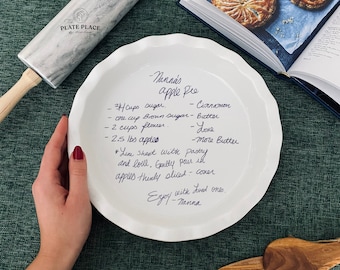 PLATE PLACE
- Nanna's
Apple Pie
- 3/4 cups sugar - Cinnamon
- one cup brown sugar - Butter
- 2 cups flower - Love
- 2.5 lbs apples - More Butter
* Line sheet with pastry
and bake, Gently pour in
apples thinly sliced - cover
Enjoy with loved ones
- Nanna